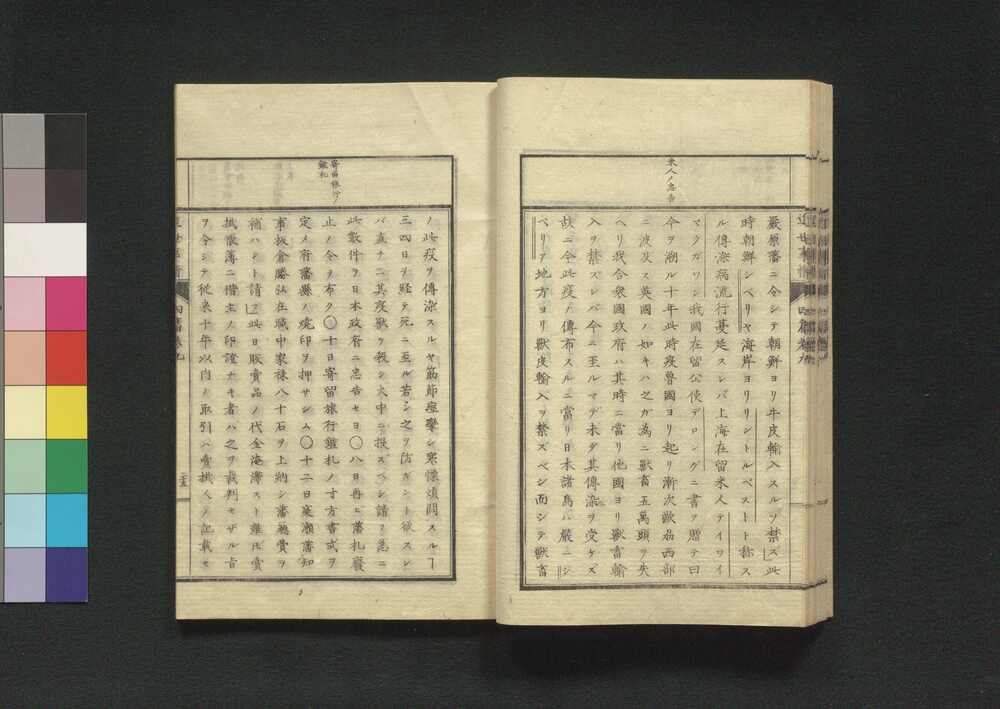 米人ノ忠告
嚴原藩ニ令シテ朝鮮ヨリ牛皮輸入スルヲ禁ズ」此
時朝鮮シベリヤ海岸ヨリリントルペストト称ス
ル傳染病流行蔓延スレバ上海在留米人テイワイ
マクガワン我國在留公使デロングニ書ヲ贈テ曰
今ヲ溯ル十年此時疫魯國ヨリ起リ漸次歐羅西部
ニ波及ス英國ノ如キハ之ガ為ニ獣畜五萬頭ヲ失
ヘリ我合衆國政府ハ其時ニ當リ他國ヨリ獣畜輸
入ヲ禁ズレバ今ニ至ルマデ未ダ其傳染ヲ受ケズ
故ニ今此疫ノ傳布スルニ當リ日本諸島ハ嚴ニシ
ベリア地方ヨリ獣皮輸入ヲ禁ズベシ而シテ獣畜
寄留旅行ノ
鑑札
ノ此疫ヲ傳染スルヤ筋節痙攣シ寒慄煩悶スルヿ
三四日ヲ経テ死ニ至ル若シ之ヲ防ガント欲スレ
バ直チニ其疫獣ヲ殺シ火中ニ投ズベシ請フ急ニ
此数件ヲ日本政府ニ忠告セヨ〇八日再ビ藩札廢
止ノ令ヲ布ク〇十日寄留旅行鑑札ノ寸方書式ヲ
定メ府藩縣ノ烧印ヲ押サシム〇十二日庭瀬藩知
事板倉勝弘在職中家禄八十石ヲ上納シ藩聴費ヲ
補ハント請フ」此日販賣品ノ代金淹滞スト雖氏賣
掛帳簿ニ借主ノ印證ナキ者ハ之ヲ裁判セザル旨
ヲ令シテ従来十年以内ノ取引ハ賣掛人ノ記載セ
四篇巻九
二十五